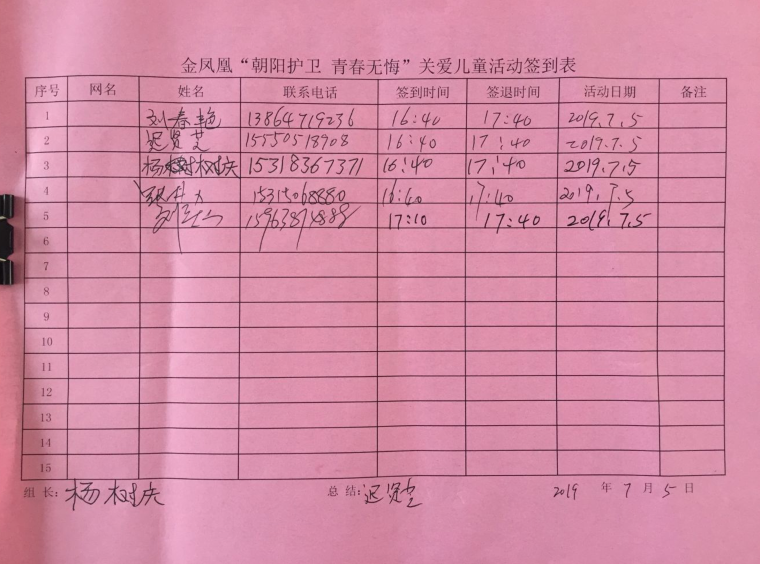 金凤凰“朝阳护卫 青春无悔”关爱儿童活动签到表
序号 网名 姓名 联系电话 签到时间 签退时间 活动日期 备注
1 刘春艳 13864719236 16:40 17:40 2019.7.5
2 迟贤芝 15550518908 16:40 17:40 2019.7.5
3 杨树庆 15318367371 16:40 17:40 2019.7.5
4 15315068880 16:40 17:40 2019.7.5
5 17:10 17:40 2019.7.5
6
7
8
9
10
11
12
13
14
15
组长:杨树庆 总结:迟贤芝 2019年7月5日